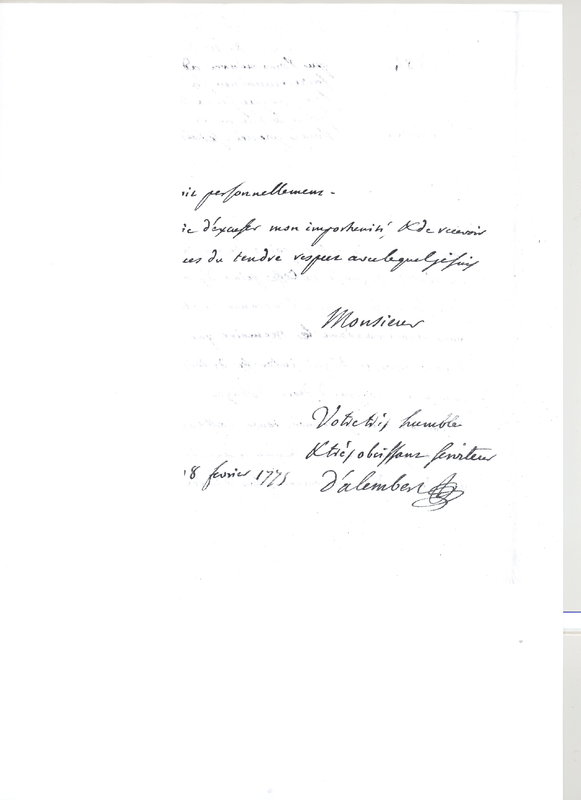 personnellement -
d'éxcuser mon importunité, & de recevoir
du tendre respect avec lequel je suis
Monsieur
Votre très humble
& très obéissant serviteur
18 fevrier 1775 d'alembert